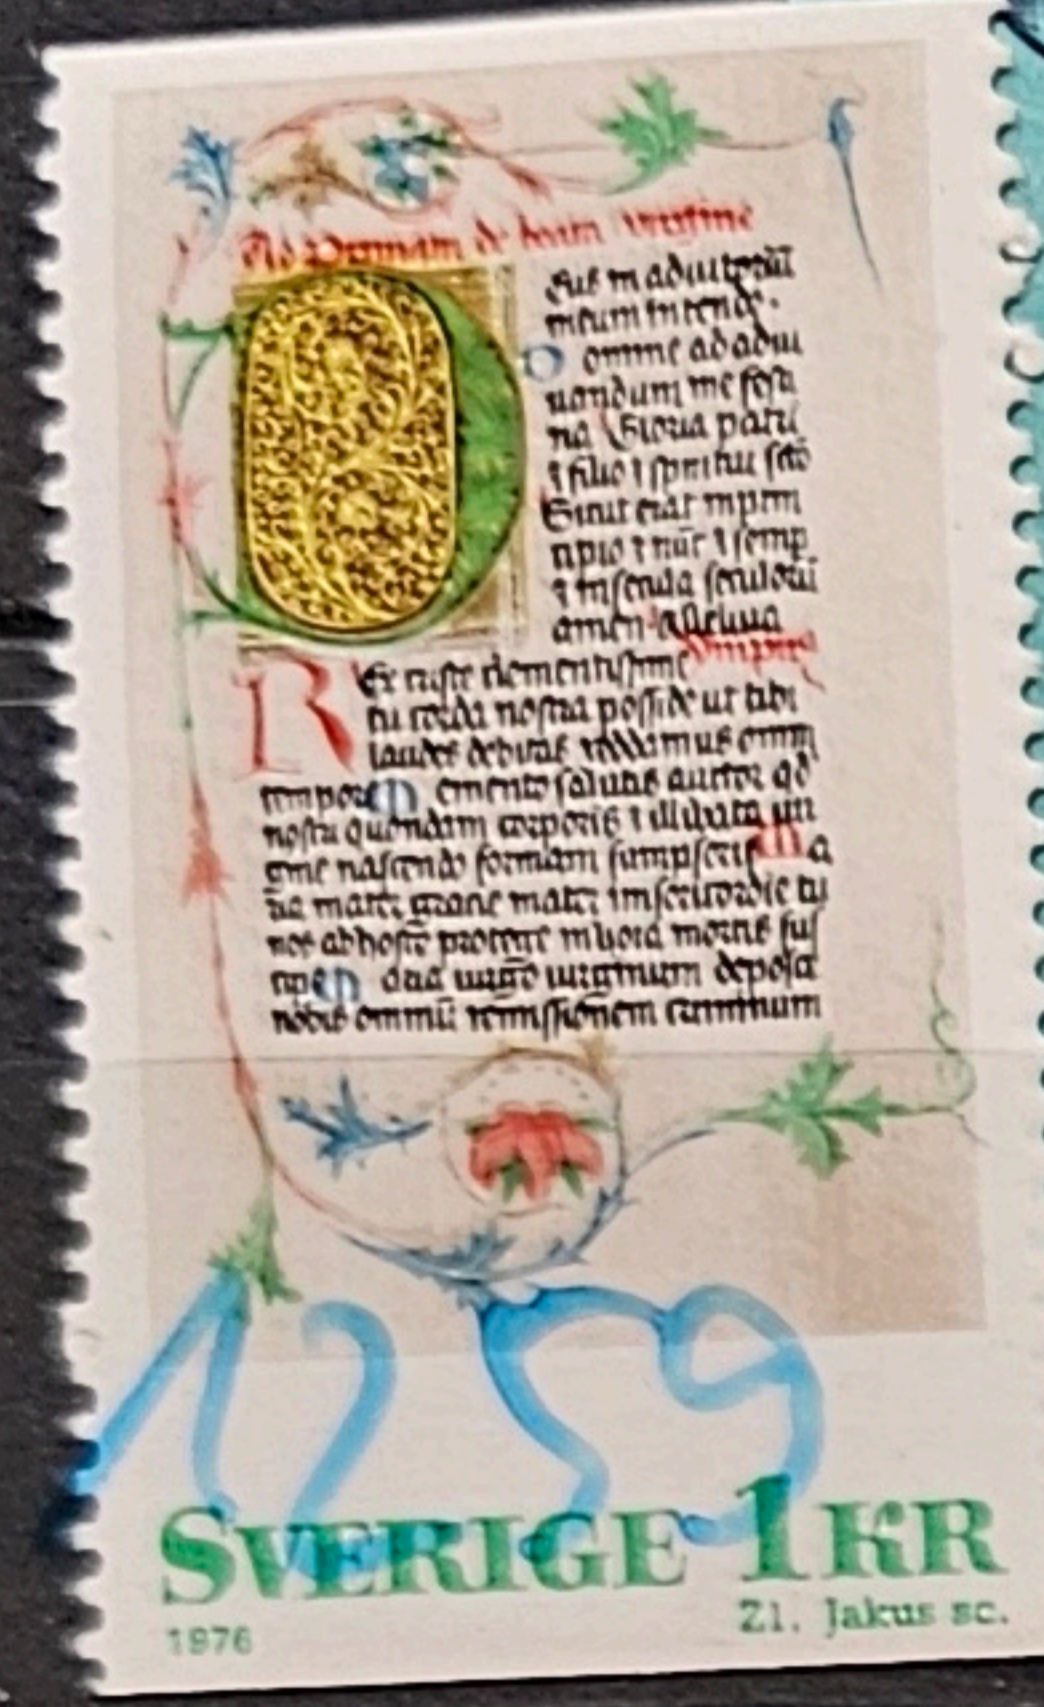 Ad Primam de beata virgine
Deus in adiutoriũ
meum intende.
Domine ad adiu
uandum me festi
na Gloria patri
⁊ filio ⁊ spiritui scõ
Sicut erat in prin
cipio ⁊ nũc ⁊ semp
⁊ in secula seculoru
amen alleluia
Rex criste clementissime
tu corda nostra posside ut tibi
laudes debitas reddamus omni
tempore Memento salutis auctor qd
nostri quondam corporis ⁊ illibata uir
gine nascendo formam sumpseris Ma
ria mater gracie mater misericordie tu
nos ab hoste protege in hora mortis sus
cipe
nobis omniũ remissionem criminum
1259
SVERIGE 1KR
1976 Zl. Jakus sc.